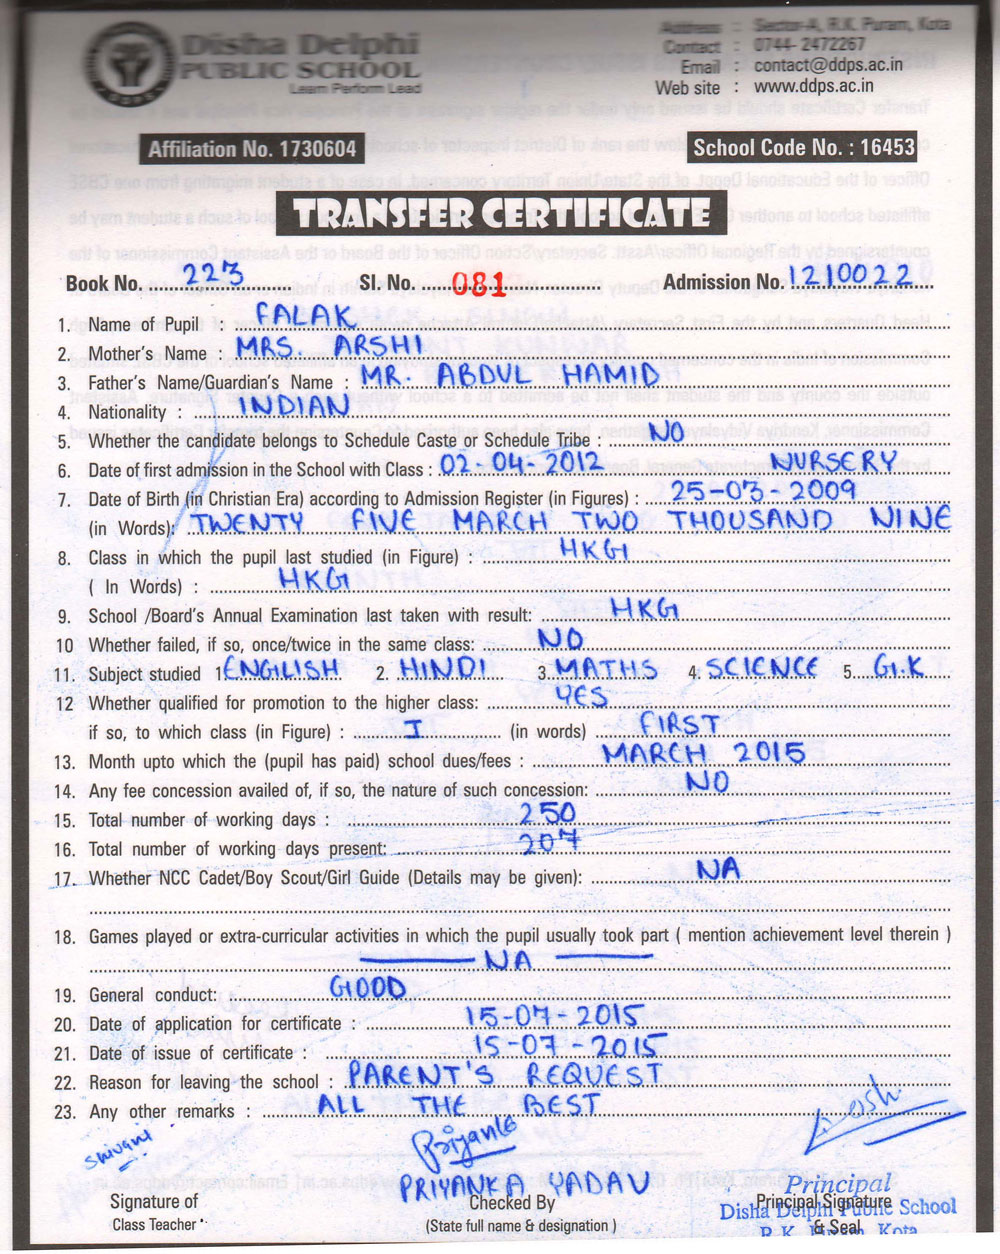 Disha Delphi
PUBLIC SCHOOL
Learn Perform Lead
Address : Sector-A, R.K. Puram, Kota
Contact : 0744- 2472267
Email : contact@ddps.ac.in
Web site : www.ddps.ac.in
Affiliation No. 1730604
School Code No. : 16453
TRANSFER CERTIFICATE
Book No. 223 Sl. No. 081 Admission No. 1210022
1. Name of Pupil : FALAK
2. Mother's Name : MRS. ARSHI
3. Father's Name/Guardian's Name : MR. ABDUL HAMID
4. Nationality : INDIAN
5. Whether the candidate belongs to Schedule Caste or Schedule Tribe : NO
6. Date of first admission in the School with Class : 02-04-2012 NURSERY
7. Date of Birth (in Christian Era) according to Admission Register (in Figures) : 25-03-2009
(in Words): TWENTY FIVE MARCH TWO THOUSAND NINE
8. Class in which the pupil last studied (in Figure) : HKG
( In Words) : HKG
9. School /Board's Annual Examination last taken with result: HKG
10 Whether failed, if so, once/twice in the same class: NO
11. Subject studied 1. ENGLISH 2. HINDI 3. MATHS 4. SCIENCE 5. G.K
12 Whether qualified for promotion to the higher class: YES
if so, to which class (in Figure) : I (in words) FIRST
13. Month upto which the (pupil has paid) school dues/fees : MARCH 2015
14. Any fee concession availed of, if so, the nature of such concession: NO
15. Total number of working days : 250
16. Total number of working days present: 207
17. Whether NCC Cadet/Boy Scout/Girl Guide (Details may be given): NA
18. Games played or extra-curricular activities in which the pupil usually took part ( mention achievement level therein )
NA
19. General conduct: GOOD
20. Date of application for certificate : 15-07-2015
21. Date of issue of certificate : 15-07-2015
22. Reason for leaving the school : PARENT'S REQUEST
23. Any other remarks : ALL THE BEST
Shivani
Priyanka
PRIYANKA YADAV
Signature of
Class Teacher
Checked By
(State full name & designation )
Principal
Principal Signature
Disha Delphi Public School
& Seal
R.K. Puram, Kota